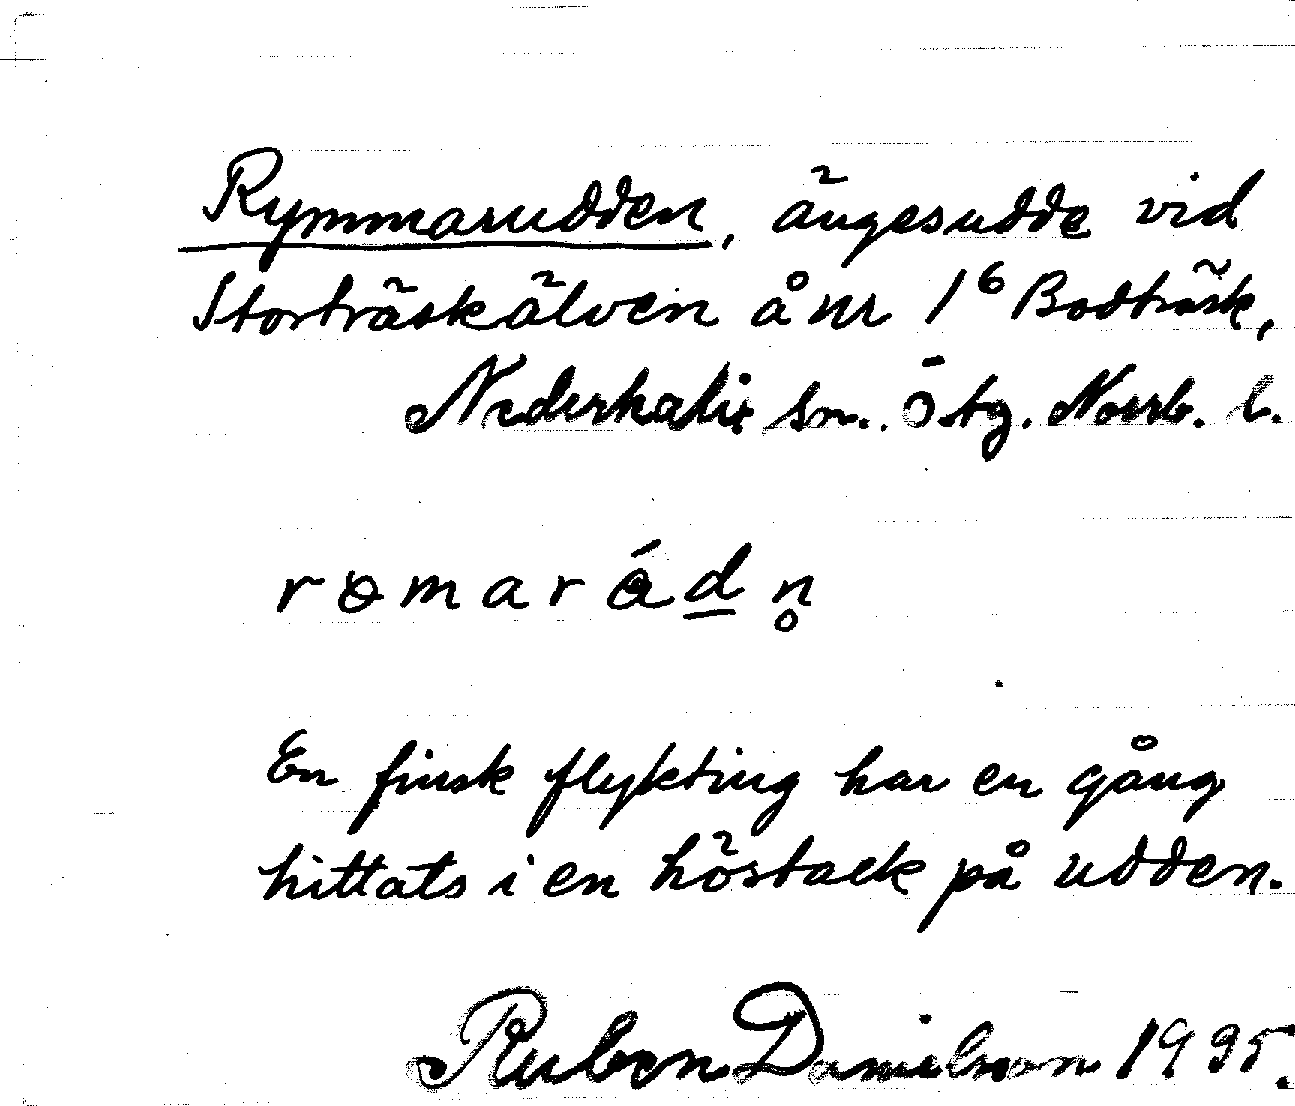 Rymmarudden, ängesudde vid
Storträskälven å nr 1⁶ Bodträsk,
Nederkalix sn. Östg. Norrb. l.
rømarádn̥
En finsk flykting har en gång
hittats i en höstack på udden.
Ruben Danielson 1935.